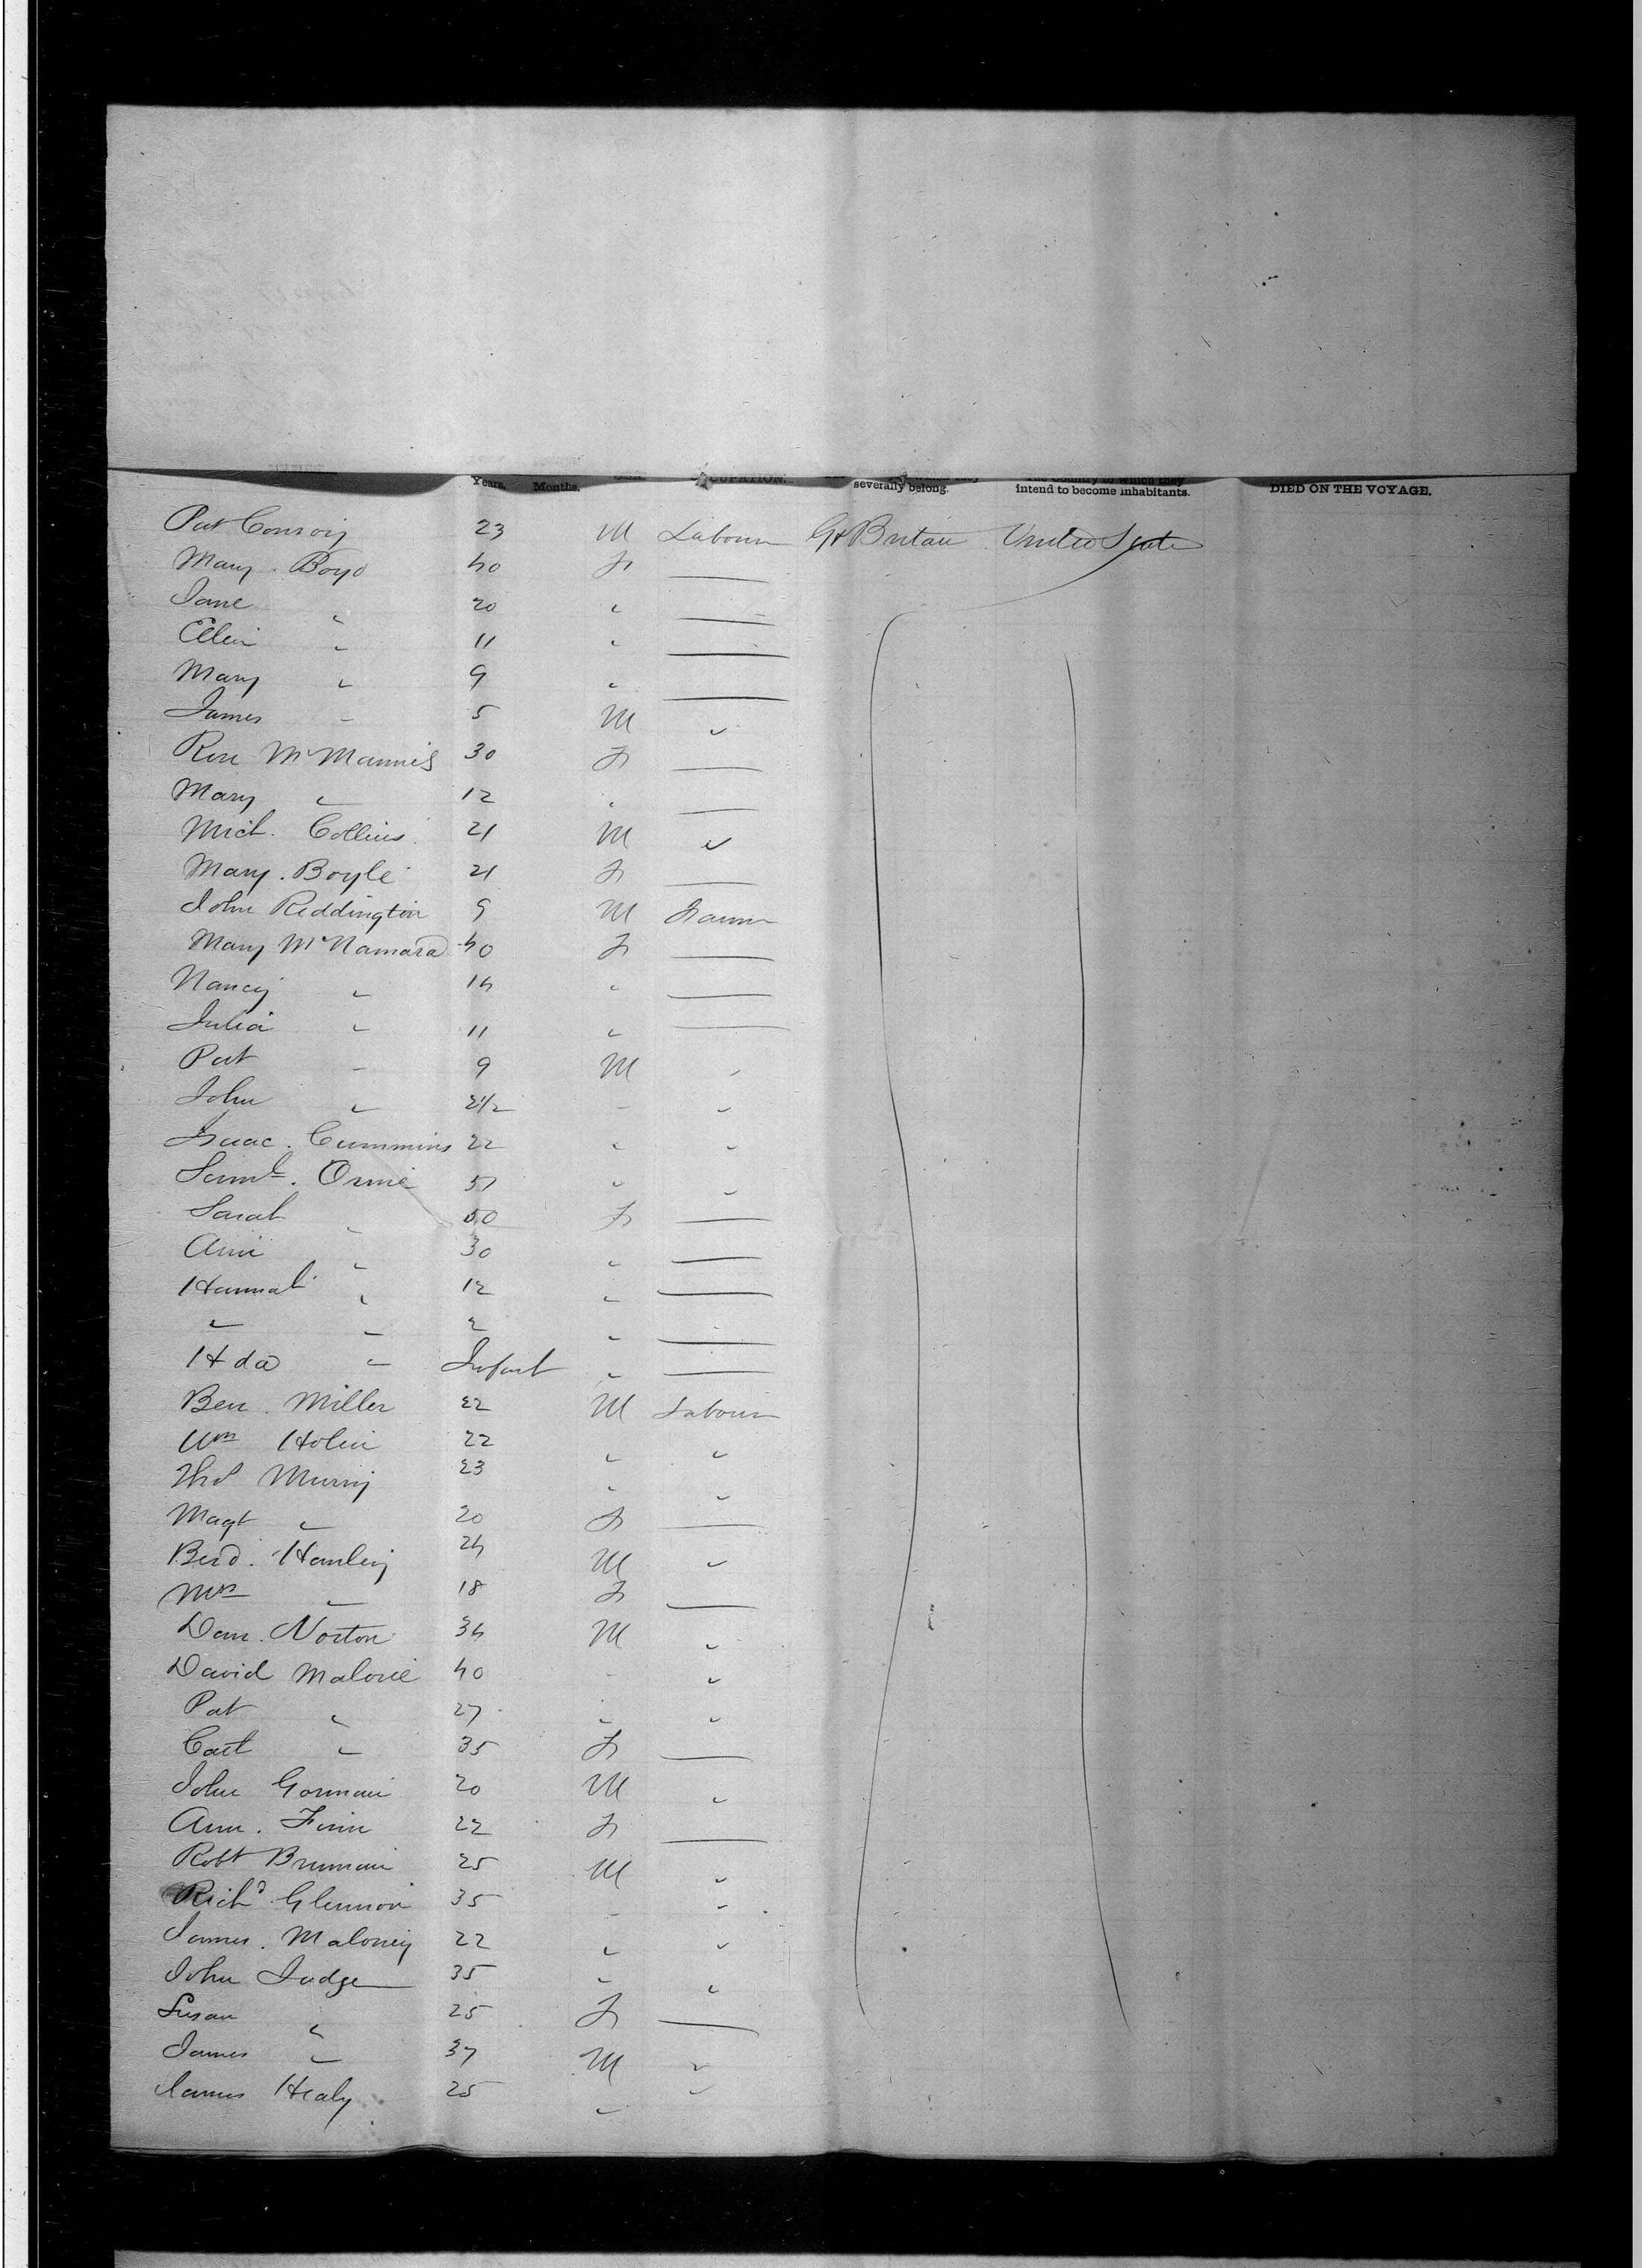 Years. Months. severally belong. intend to become inhabitants. DIED ON THE VOYAGE.
Pat Conroy 23 M Labour Gt Britain United State
Mary . Boyd 40 F —
Jane " 20 " —
Ellen " 11 " —
Mary " 9 " —
James " 5 M "
Rose McMannis 30 F —
Mary " 12 " —
Mich. Collins 21 M "
Mary . Boyle 21 F —
John Reddington 9 M Farmer
Mary McNamara 40 F —
Nancy " 14 " —
Julia " 11 " —
Pat " 9 M "
John " 2 1/2 " "
Isaac . Cummins 22 " "
Saml . Orme 57 " "
Sarah " 50 F —
Ann " 30 " —
Hannah " 12 " —
" " 2 " —
Hda " Infant " —
Ben . Miller 22 M Labour
Wm 22 " "
Thos Murry 23 " "
Magt " 20 F —
Berd . Hanley 24 M "
Mrs " 18 F —
Dan . Norton 34 M "
David Malone 40 " "
Pat " 27 " "
Cath " 35 F —
John Gorman 20 M "
Ann . Finn 22 F —
Robt 25 M "
Richd Glennon 35 " "
James . Maloney 22 " "
John Judge 35 " "
Susan " 25 F —
James " 37 M "
James Healy 25 " "